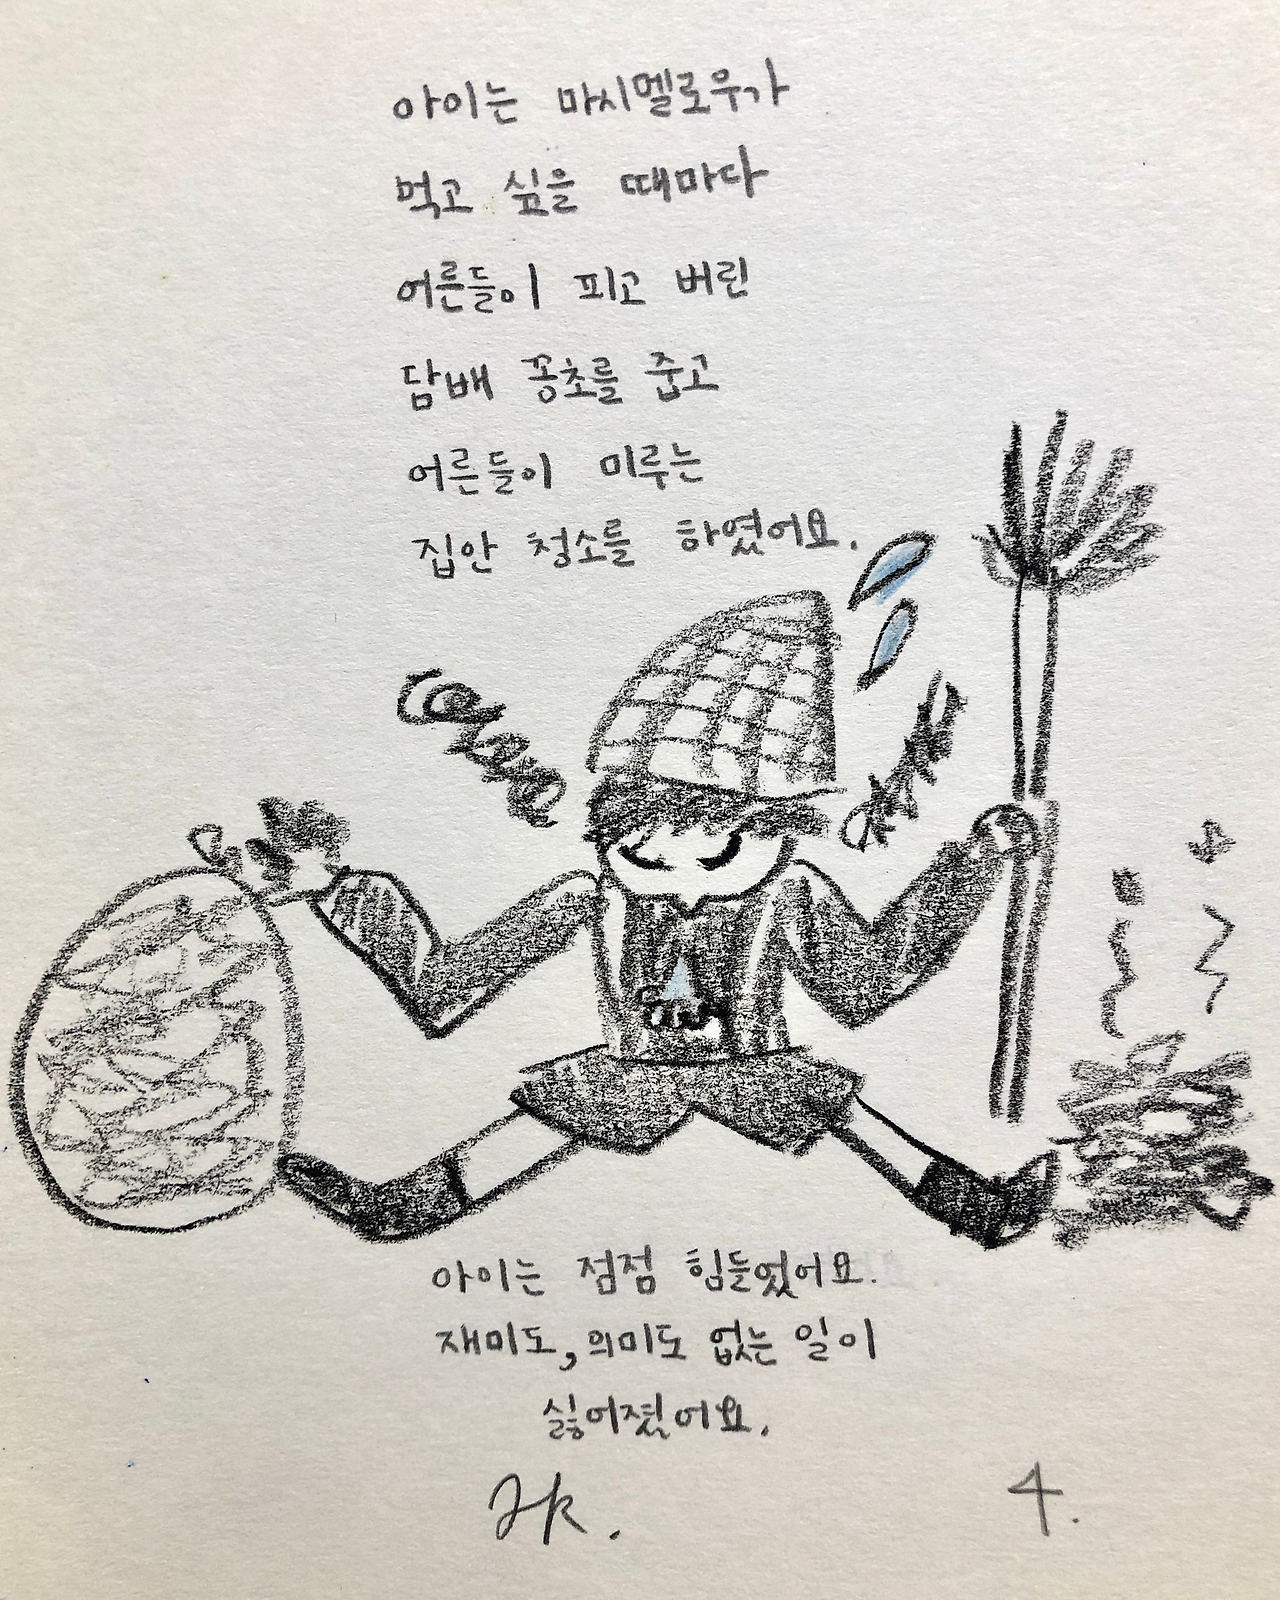 아이는 마시멜로우가
먹고 싶을 때마다
어른들이 피고 버린
담배 꽁초를 줍고
어른들이 미루는
집안 청소를 하였어요.
아이는 점점 힘들었어요.
재미도, 의미도 없는 일이
싫어졌어요.
4.